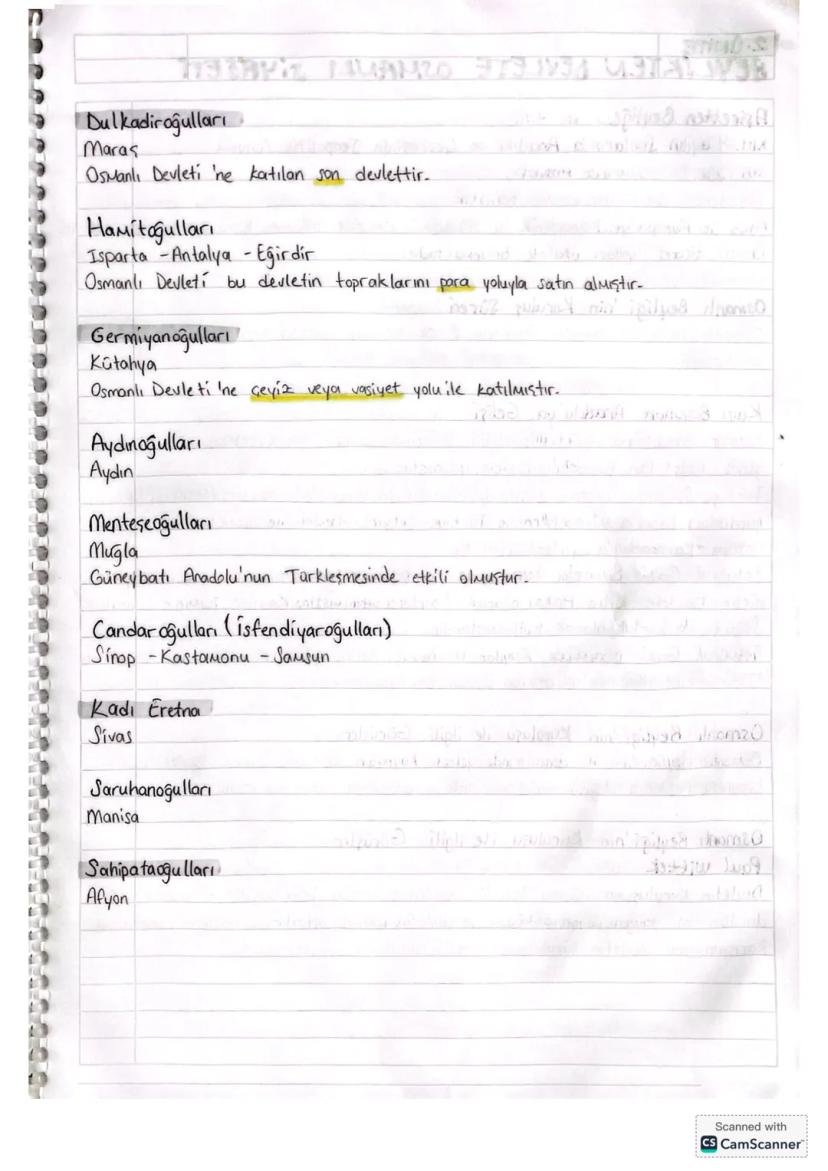 Dulkadiroğulları
Maraş
Osmanlı Devleti 'ne katılan son devlettir.
Hamitoğulları
Isparta - Antalya - Eğirdir
Osmanlı Devleti bu devletin topraklarını para yoluyla satın almıştır.
Germiyanoğulları
Kütahya
Osmanlı Devleti 'ne çeyiz veya vasiyet yolu ile katılmıştır.
Aydınoğulları
Aydın
Menteşeoğulları
Muğla
Güneybatı Anadolu'nun Türkleşmesinde etkili olmuştur.
Candaroğulları (İsfendiyaroğulları)
Sinop - Kastamonu - Samsun
Kadı Eretna
Sivas
Saruhanoğulları
Manisa
Sahipataoğulları
Afyon
Scanned with
CS CamScanner